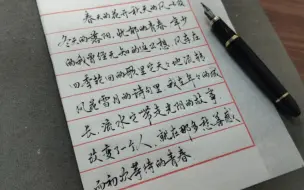 春天的花开秋天的风以及
冬天的落阳,忧郁的青春 年少
的我曾经无知的这么想 风车在
四季轮回的歌里它天天地流转
风花雪月的诗句里 我在年年的成
长,流水它带走光阴的故事
改变了一个人,就在那多愁善感
而初次等待的青春